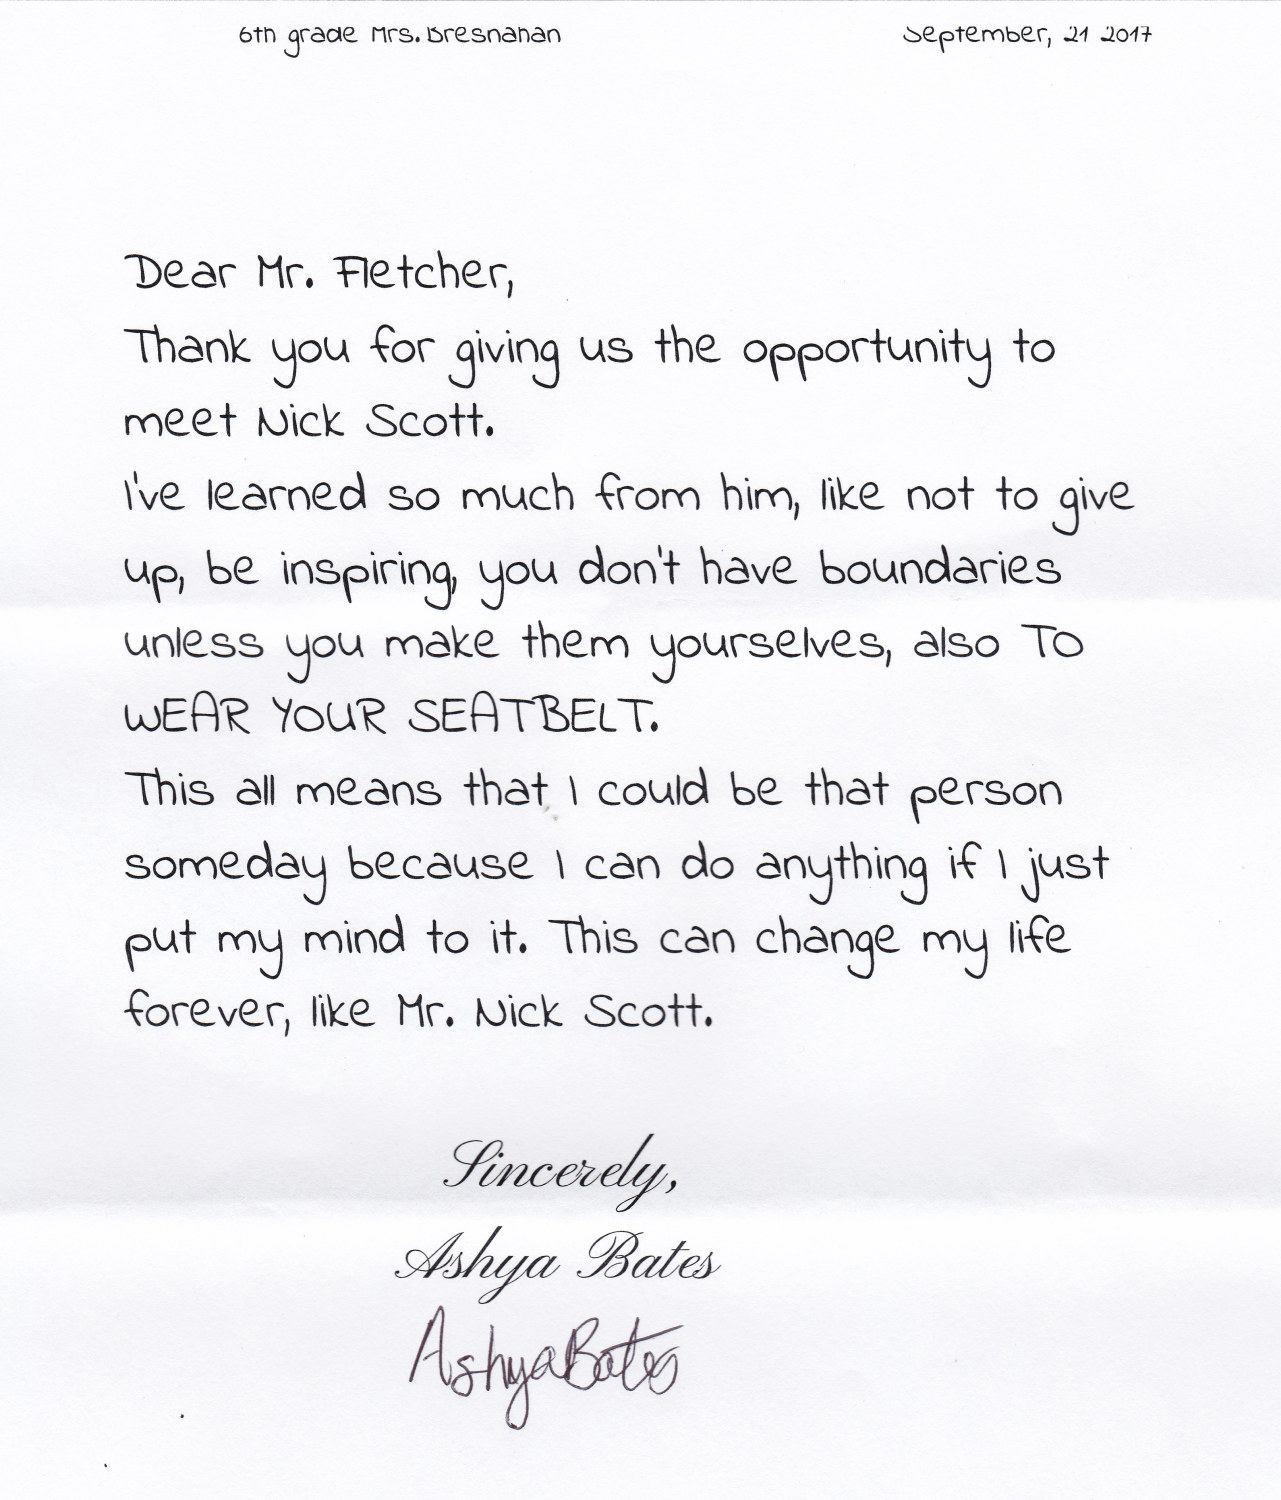 6th grade Mrs. Bresnahan September, 21 2017
Dear Mr. Fletcher,
Thank you for giving us the opportunity to
meet Nick Scott.
I've learned so much from him, like not to give
up, be inspiring, you don't have boundaries
unless you make them yourselves, also TO
WEAR YOUR SEATBELT.
This all means that I could be that person
someday because I can do anything if I just
put my mind to it. This can change my life
forever, like Mr. Nick Scott.
Sincerely,
Ashya Bates
Ashya Bates